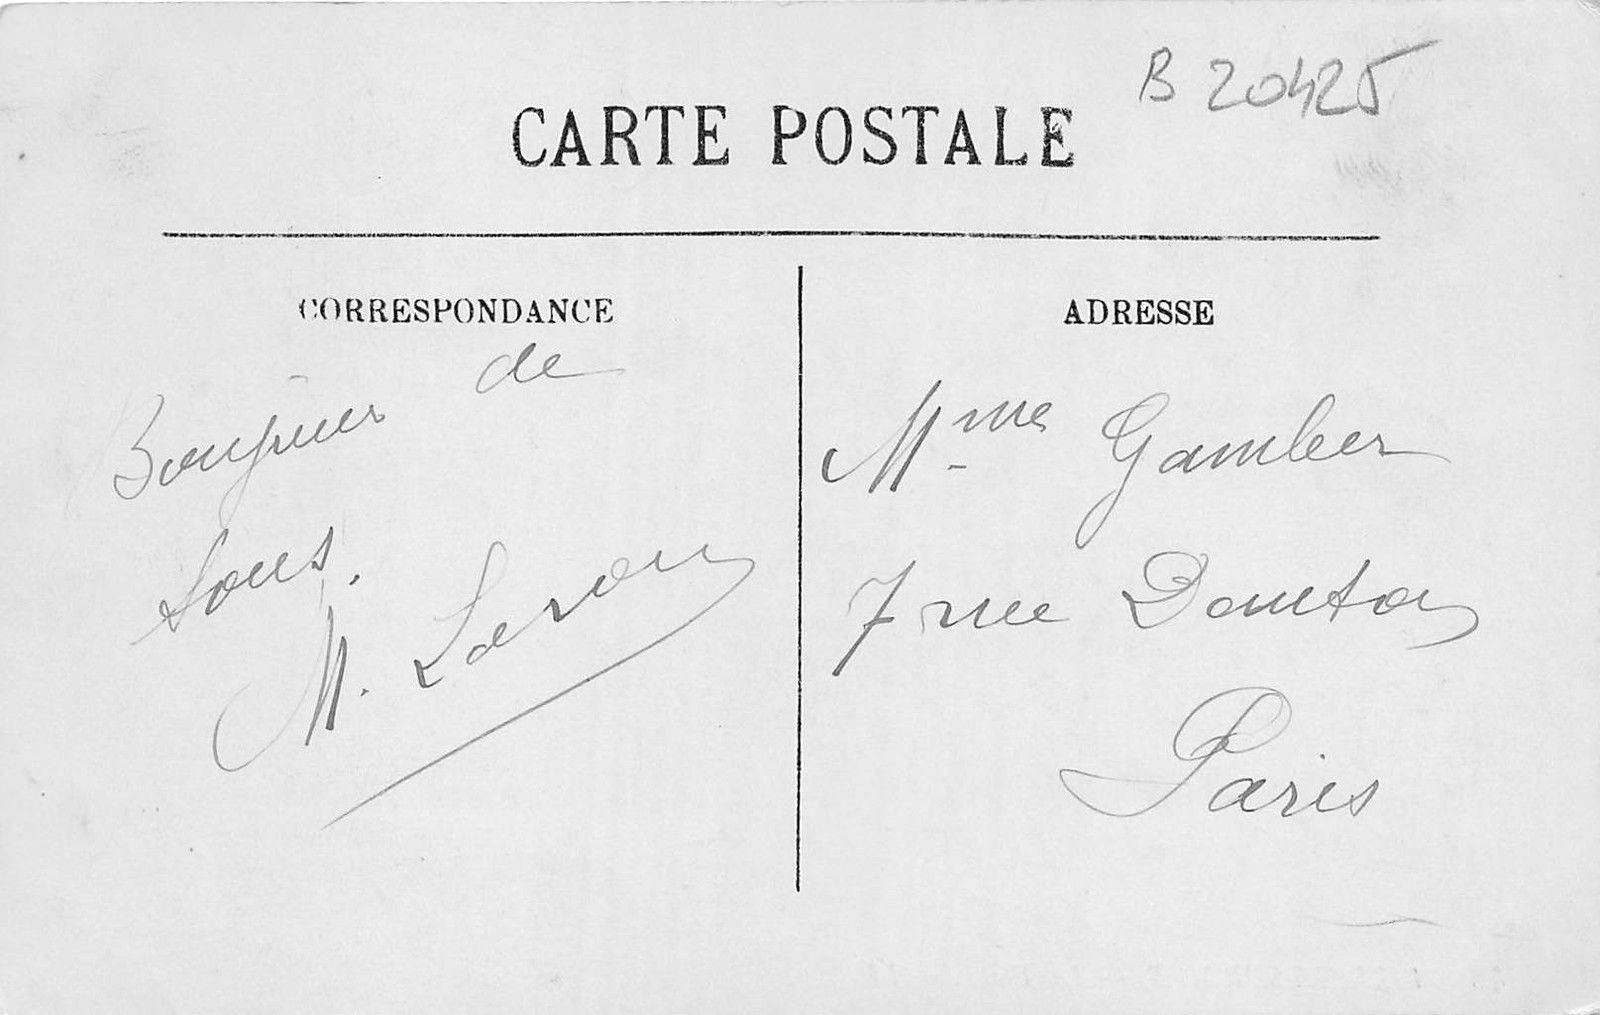 B 20425
CARTE POSTALE
CORRESPONDANCE
Bonjour de
tous.
M. Laron
ADRESSE
Mme Gamber
7 rue Danton
Paris